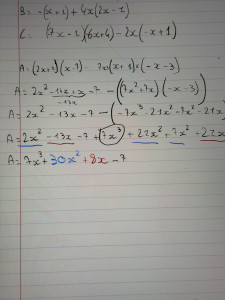 B = -(x+2) + 4x(2x-1)
C = (7x-2)(6x+4) - 2x(-x+1)
A = (2x+1)(x-7) - 7x(x+1)×(-x-3)
A = 2x² - 14x + x - 7 - (7x²+7x)(-x-3)
-13x
A = 2x² - 13x - 7 - (-7x³ - 21x² - 7x² - 21x)
A = 2x² - 13x - 7 + 7x³ + 21x² + 7x² + 21x
A = 7x³ + 30x² + 8x - 7